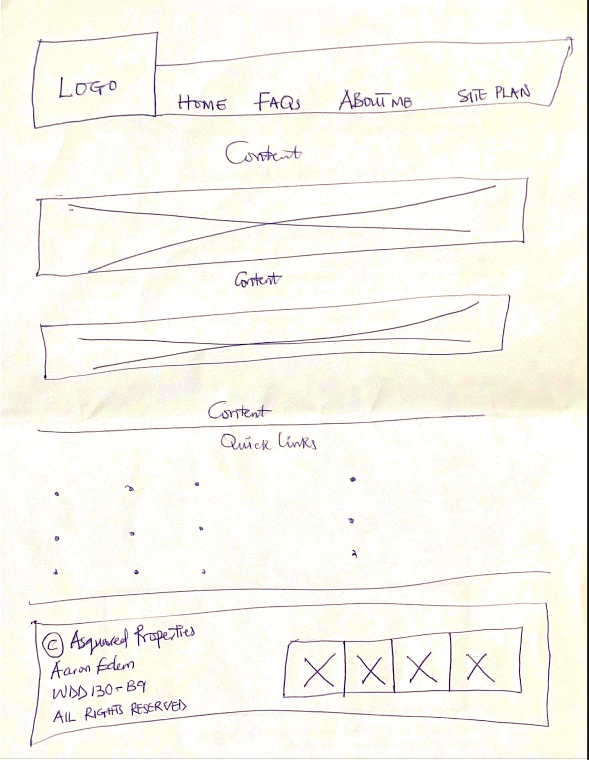 LOGO
HOME FAQs ABOUT ME SITE PLAN
Content
Content
Content
Quick Links
© Asquared Properties
Aaron Edem
WDD130-B9
ALL RIGHTS RESERVED